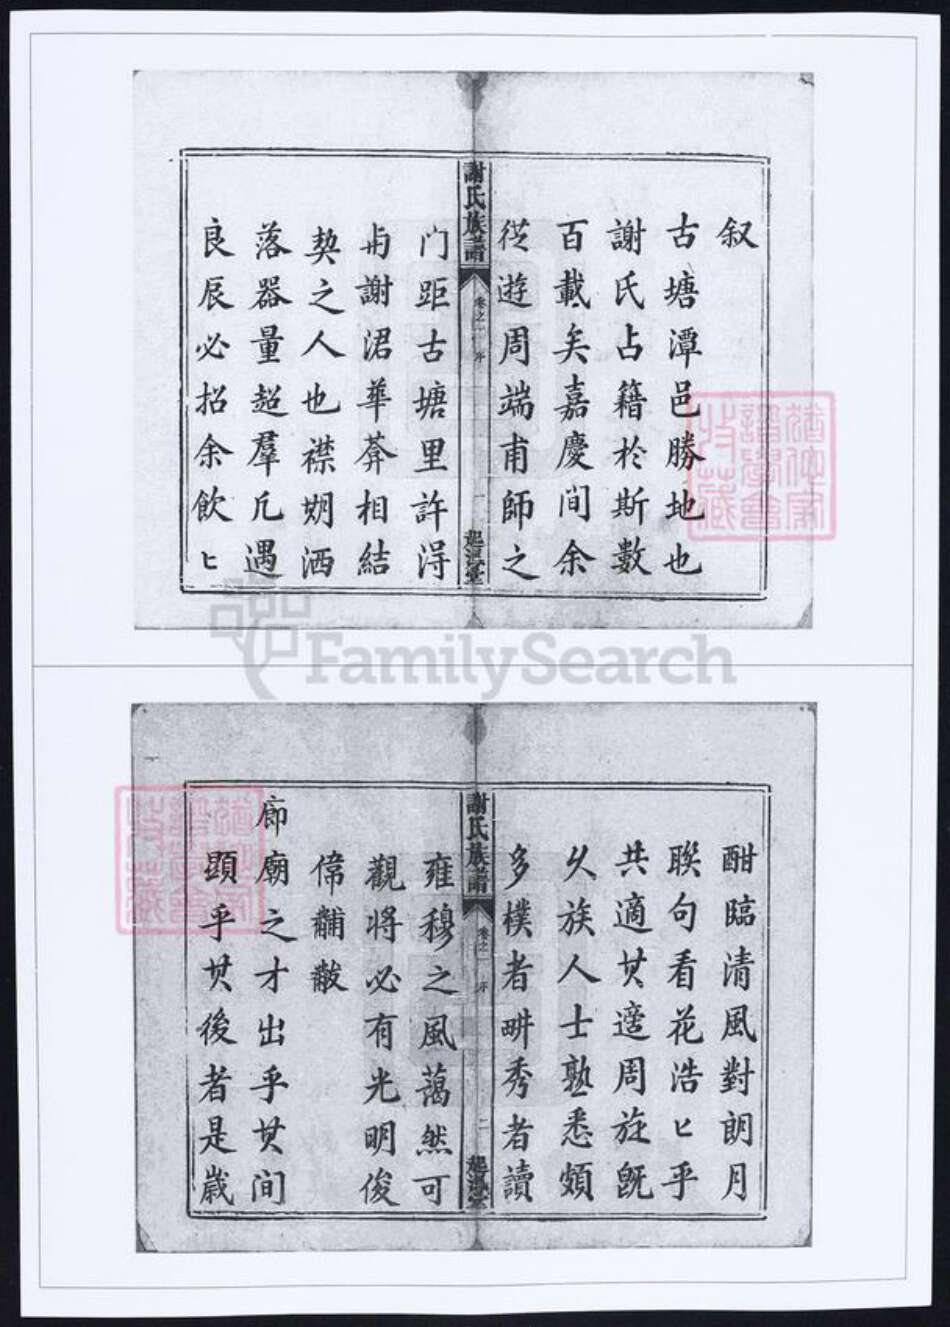 叙
古塘潭邑勝地也
謝氏占籍於斯數
百載矣嘉慶間余
從遊周端甫師之
謝氏族譜
卷之一 序
一
起淵堂
门距古塘里許淂
與謝涒華莾相結
契之人也襟期洒
落器量超羣凡遇
良辰必招余飲匕
酣臨清風對朗月
聯句看花浩匕乎
共適其適周旋旣
久族人士熟悉頗
多樸者畊秀者讀
謝氏族譜
卷之一 序
二
起淵堂
雍穆之風藹然可
觀將必有光明俊
偉黼黻
廊廟之才出乎其間
顕乎其後者是歲
FamilySearch